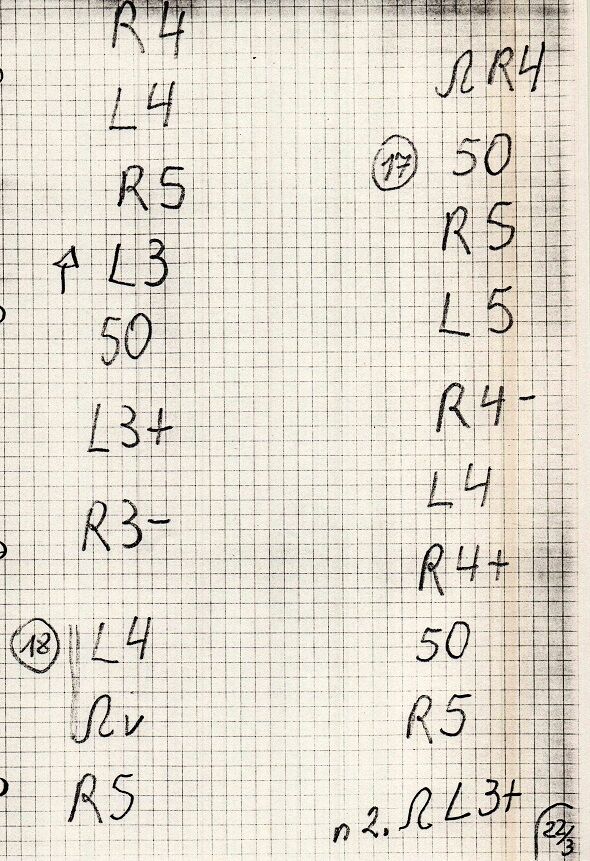 R4
L4
R5
↑ L3
50
L3+
R3-
18 L4
Ω v
R5
Ω R4
17 50
R5
L5
R4-
L4
R4+
50
R5
n 2. Ω L3+
22/3